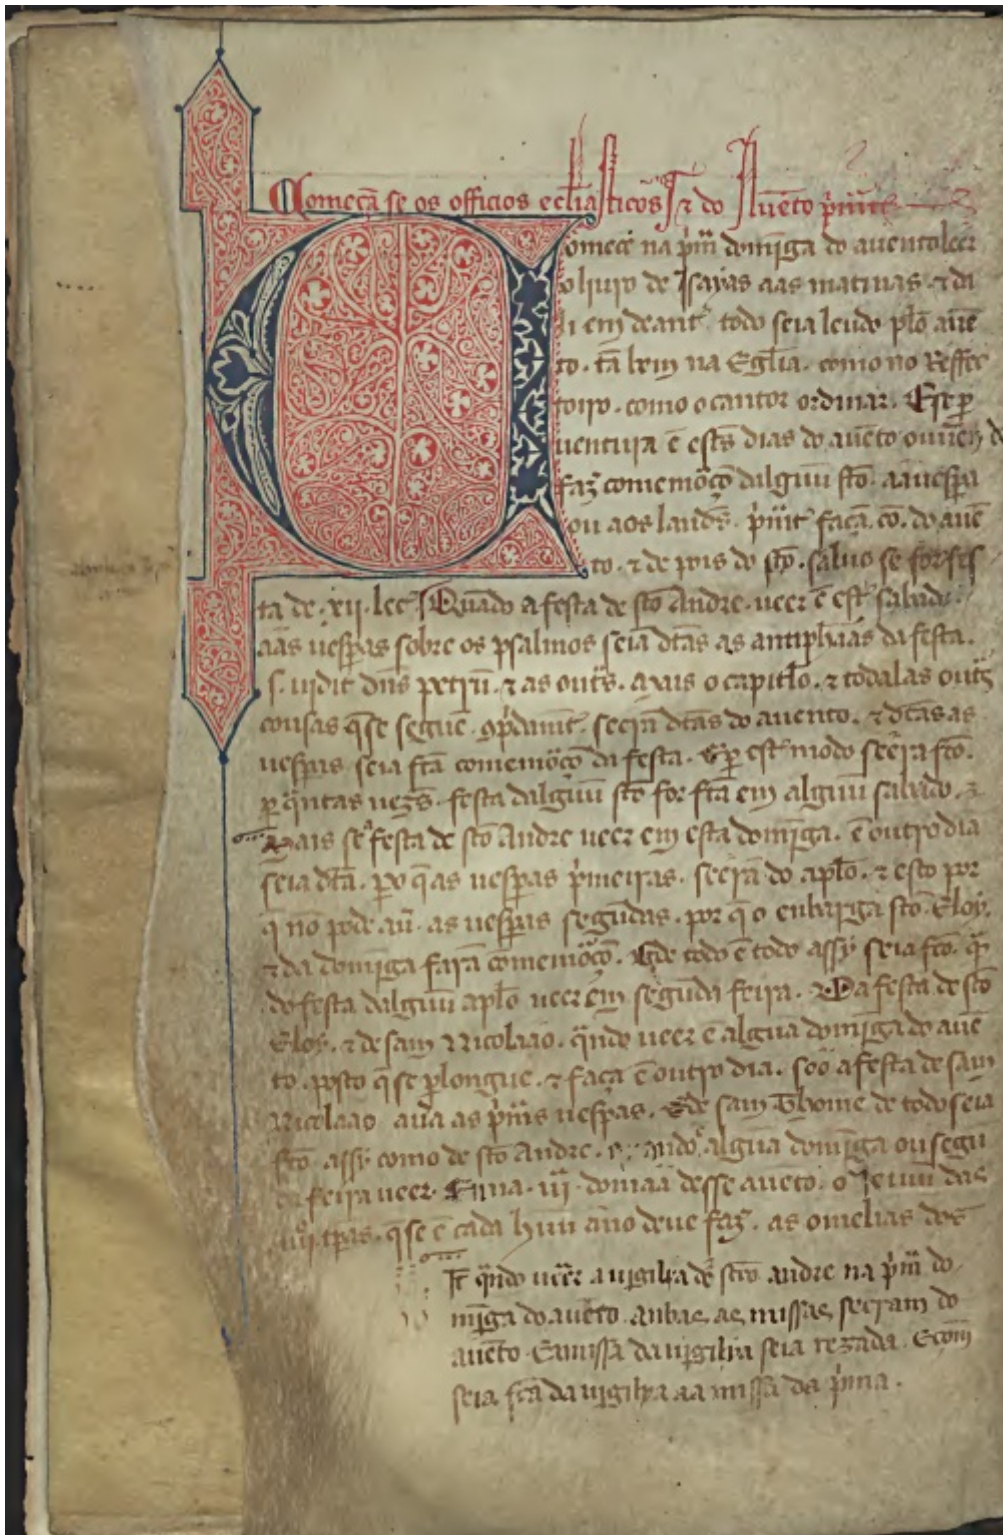 Começã se os officios eccl̃iasticos ⁊ do Auẽto p̃im̃
omece na p̃im̃ domĩga do auento leer
o liuro de Isayas aas matinas ⁊ da
li em deant̃ todo seia leudo pl̃o auẽ
to. tã bem na Egl̃ia. como no Reffer
toiro. como o cantor ordinar. E se p̱
uentura ẽ estes dias do auẽto ouuer̃ d
faz̃ comemõçõ dalguũ sc̃o. aa uesp̱a
ou aos laudes. p̃imr̃ façã. cõ. do auẽ
to. ⁊ de pois do sc̃o. saluo se for fes
ta de. xii. lec̃ Quãdo a festa de sc̃o Andre. ueer ẽ est̃ sabado.
aas uesp̱as sobre os psalmos seiã dc̃as as antiph̃aas da festa.
s. uidit dñs petrũ. ⁊ as out̃s. Mais o capitl̃o. ⁊ todalas out̃s
cousas q̃ se seguẽ. ꝯp̃dament̃. seerã dc̃as do auento. ⁊ dc̃as as
uesp̱as seia fc̃a comemõçõ da festa. E p̱ est̃ modo seera fc̃o.
p̱ q̃ntas uezes. festa dalguũ sc̃o for fc̃a em alguũ sabado.
Mais se a festa de sc̃o Andre ueer em esta domĩga. ẽ outro dia
seia dc̃a. p̱o q̃ as uesp̱as p̃imeiras. seerã do apl̃o. ⁊ esto por
q̃ nõ pode. au̾. as uesp̱as segũdas. por q̃ o enbarga sc̃o Eloy.
⁊ da domĩga farã comemõçõ. E de todo ẽ todo assy seia fc̃o. q̃n
do festa dalguũ apl̃o ueer em segũda feira. Da festa de sc̃o
Eloy. ⁊ de sam Nicolaao. q̃ndo ueer ẽ algũa domĩga do auẽ
to. posto q̃ se p̱longue. ⁊ faça ẽ outro dia. soo a festa de sam
Nicolaao aũa as p̃im̃s uesp̱as. E de sam Thome de todo seia
fc̃o. assy como de sc̃o Andre. algũa domĩga ou segũ
da feira ueer. E na. iii. domaa desse auẽto. o Ieiuũ das
iiij. tp̱as. q̃ se ẽ cada huũ ano deue faz̃. as omelias dos
It̃ q̃ndo ueer a uigilia de sc̃o andre na p̃im̃ do
mĩga do auẽto. anbas as missas seeram do
auẽto. E a missa da uigilia seia rezada. E com̃
seia fc̃a da uigilya aa missa da p̃ima.